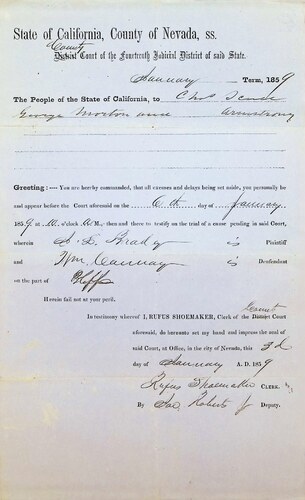 State of California, County of Nevada, ss.
County
District Court of the Fourteenth Judicial District of said State.
January Term, 1859
The People of the State of California, to Chas
George Morton and Armstrong
Greeting:—You are hereby commanded, that all excuses and delays being set aside, you personally be
and appear before the Court aforesaid on the 6th day of January
1859, at 10, o'clock A.M., then and there to testify on the trial of a cause pending in said Court,
wherein A. B. Brady is Plaintiff
and Wm. is Defendant
on the part of Plff
Herein fail not or your peril.
County
In testimony whereof I, RUFUS SHOEMAKER, Clerk of the District Court
aforesaid, do hereunto set my hand and impress the seal of
said Court, at Office, in the city of Nevada, this 3d
day of January A. D. 1859
Rufus Shoemaker CLERK.
By Jas. Roberts Jr Deputy.